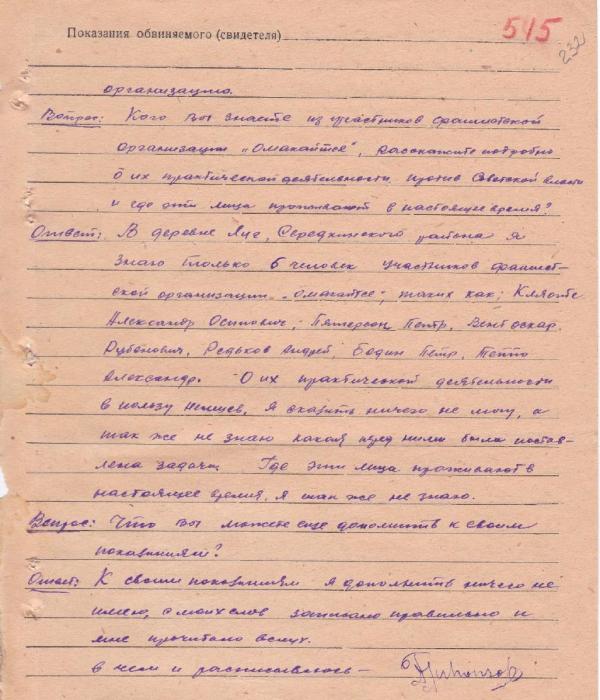 Показания обвиняемого (свидетеля)
545
232
организацию.
Вопрос: Кого вы знаете из участников фашистской
организации „Омакайтсе", расскажите подробно
о их практической деятельности против Советской власти
и где эти лица проживают в настоящее время?
Ответ: В деревне Яде, Середкинского района я
знаю только 6 человек участников фашист-
ской организации „Омакайтсе", таких как;
Александр Осипович; Петерсон Петр, Вент Оскар
Рубенович, Редьков Андрей; Бодин Петр, Теппо
Александр. О их практической деятельности
в пользу немцев, я сказать ничего не могу, а
так же не знаю какая перед ними была постав-
лена задача. Где эти лица проживают в
настоящее время, я так же не знаю.
Вопрос: Что вы можете еще дополнить к своим
показаниям?
Ответ: К своим показаниям я дополнить ничего не
имею, с моих слов записано правильно и
мне прочитано вслух.
в чем и расписываюсь –